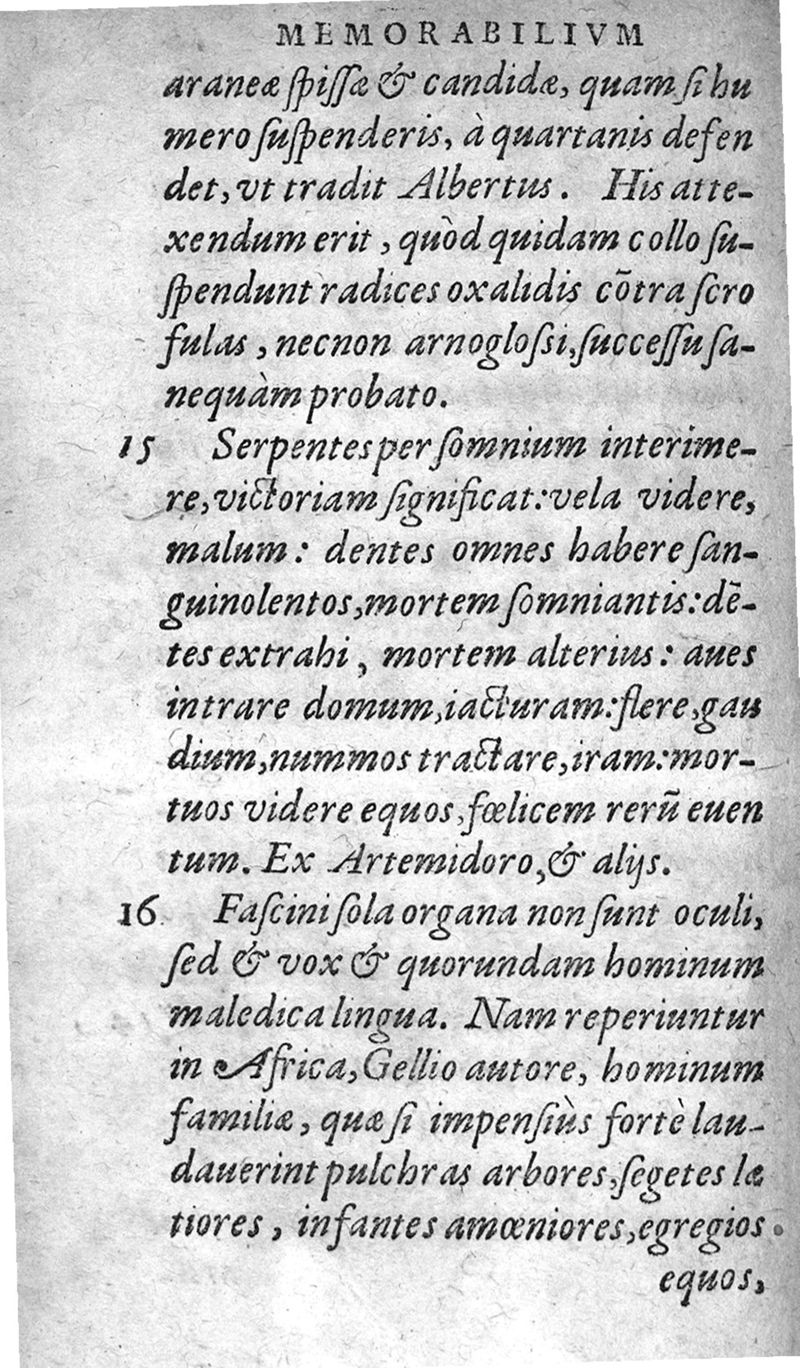 MEMORABILIVM
araneæ ſpiſſæ & candidæ, quam ſi hu
mero ſuſpenderis, à quartanis defen
det, vt tradit Albertus. His atte-
xendum erit, quòd quidam collo ſu-
ſpendunt radices oxalidis cōtra ſcro
fulas, necnon arnogloſsi, ſucceſſu ſa-
nequàm probato.
15 Serpentes per ſomnium interime-
re, victoriam ſignificat: vela videre,
malum: dentes omnes habere ſan-
guinolentos, mortem ſomniantis: dē-
tes extrahi, mortem alterius: aues
intrare domum, iacturam: flere, gau
dium, nummos tractare, iram: mor-
tuos videre equos, fœlicem rerū euen
tum. Ex Artemidoro, & alijs.
16 Faſcini ſola organa non ſunt oculi,
ſed & vox & quorundam hominum
maledica lingua. Nam reperiuntur
in Africa, Gellio autore, hominum
familiæ, quæ ſi impenſiùs fortè lau-
dauerint pulchras arbores, ſegetes læ
tiores, infantes amœniores, egregios
equos,